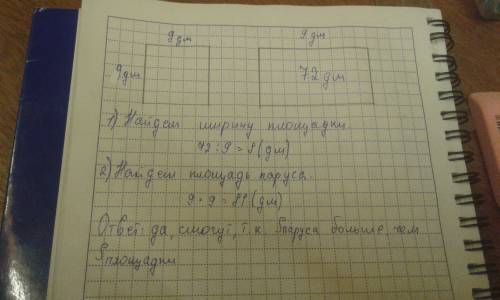 9 дм 9 дм
9 дм 72 дм
1) Найдем ширину площадки.
72 : 9 = 8 (дм)
2) Найдем площадь паруса.
9 • 9 = 81 (дм)
Ответ: да, смогут, т.к. Sпаруса больше, чем
Sплощадки